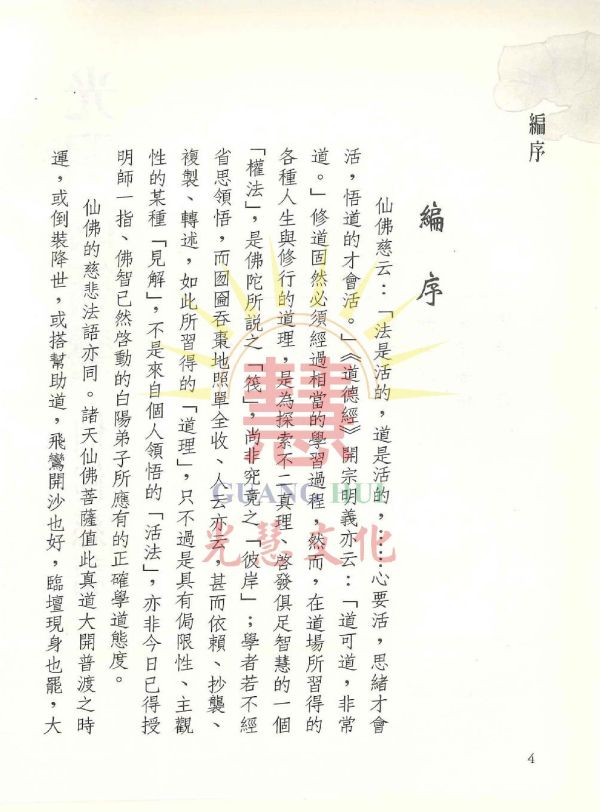 編序
編序
仙佛慈云：「法是活的，道是活的，……心要活，思緒才會
活，悟道的才會活。」《道德經》開宗明義亦云：「道可道，非常
道。」修道固然必須經過相當的學習過程，然而，在道場所習得的
各種人生與修行的道理，是為探索不二真理、啓發俱足智慧的一個
「權法」，是佛陀所說之「筏」，尚非究竟之「彼岸」；學者若不經
省思領悟，而囫圇吞棗地照單全收、人云亦云，甚而依賴、抄襲、
複製、轉述，如此所習得的「道理」，只不過是具有侷限性、主觀
性的某種「見解」，不是來自個人領悟的「活法」，亦非今日已得授
明師一指、佛智已然啓動的白陽弟子所應有的正確學道態度。
仙佛的慈悲法語亦同。諸天仙佛菩薩值此真道大開普渡之時
運，或倒裝降世，或搭幫助道，飛鸞開沙也好，臨壇現身也罷，大
慧
GUANG HUI
光慧文化
4